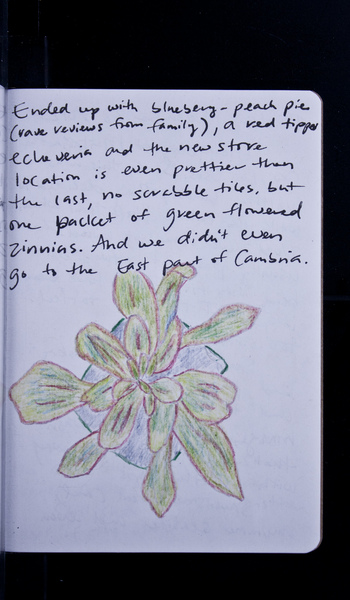 Ended up with blueberry-peach pie
(rave reviews from family), a red tipped
echeveria and the new store
location is even prettier than
the last, no scrabble tiles, but
one packet of green flowered
zinnias. And we didn't even
go to the East part of Cambria.